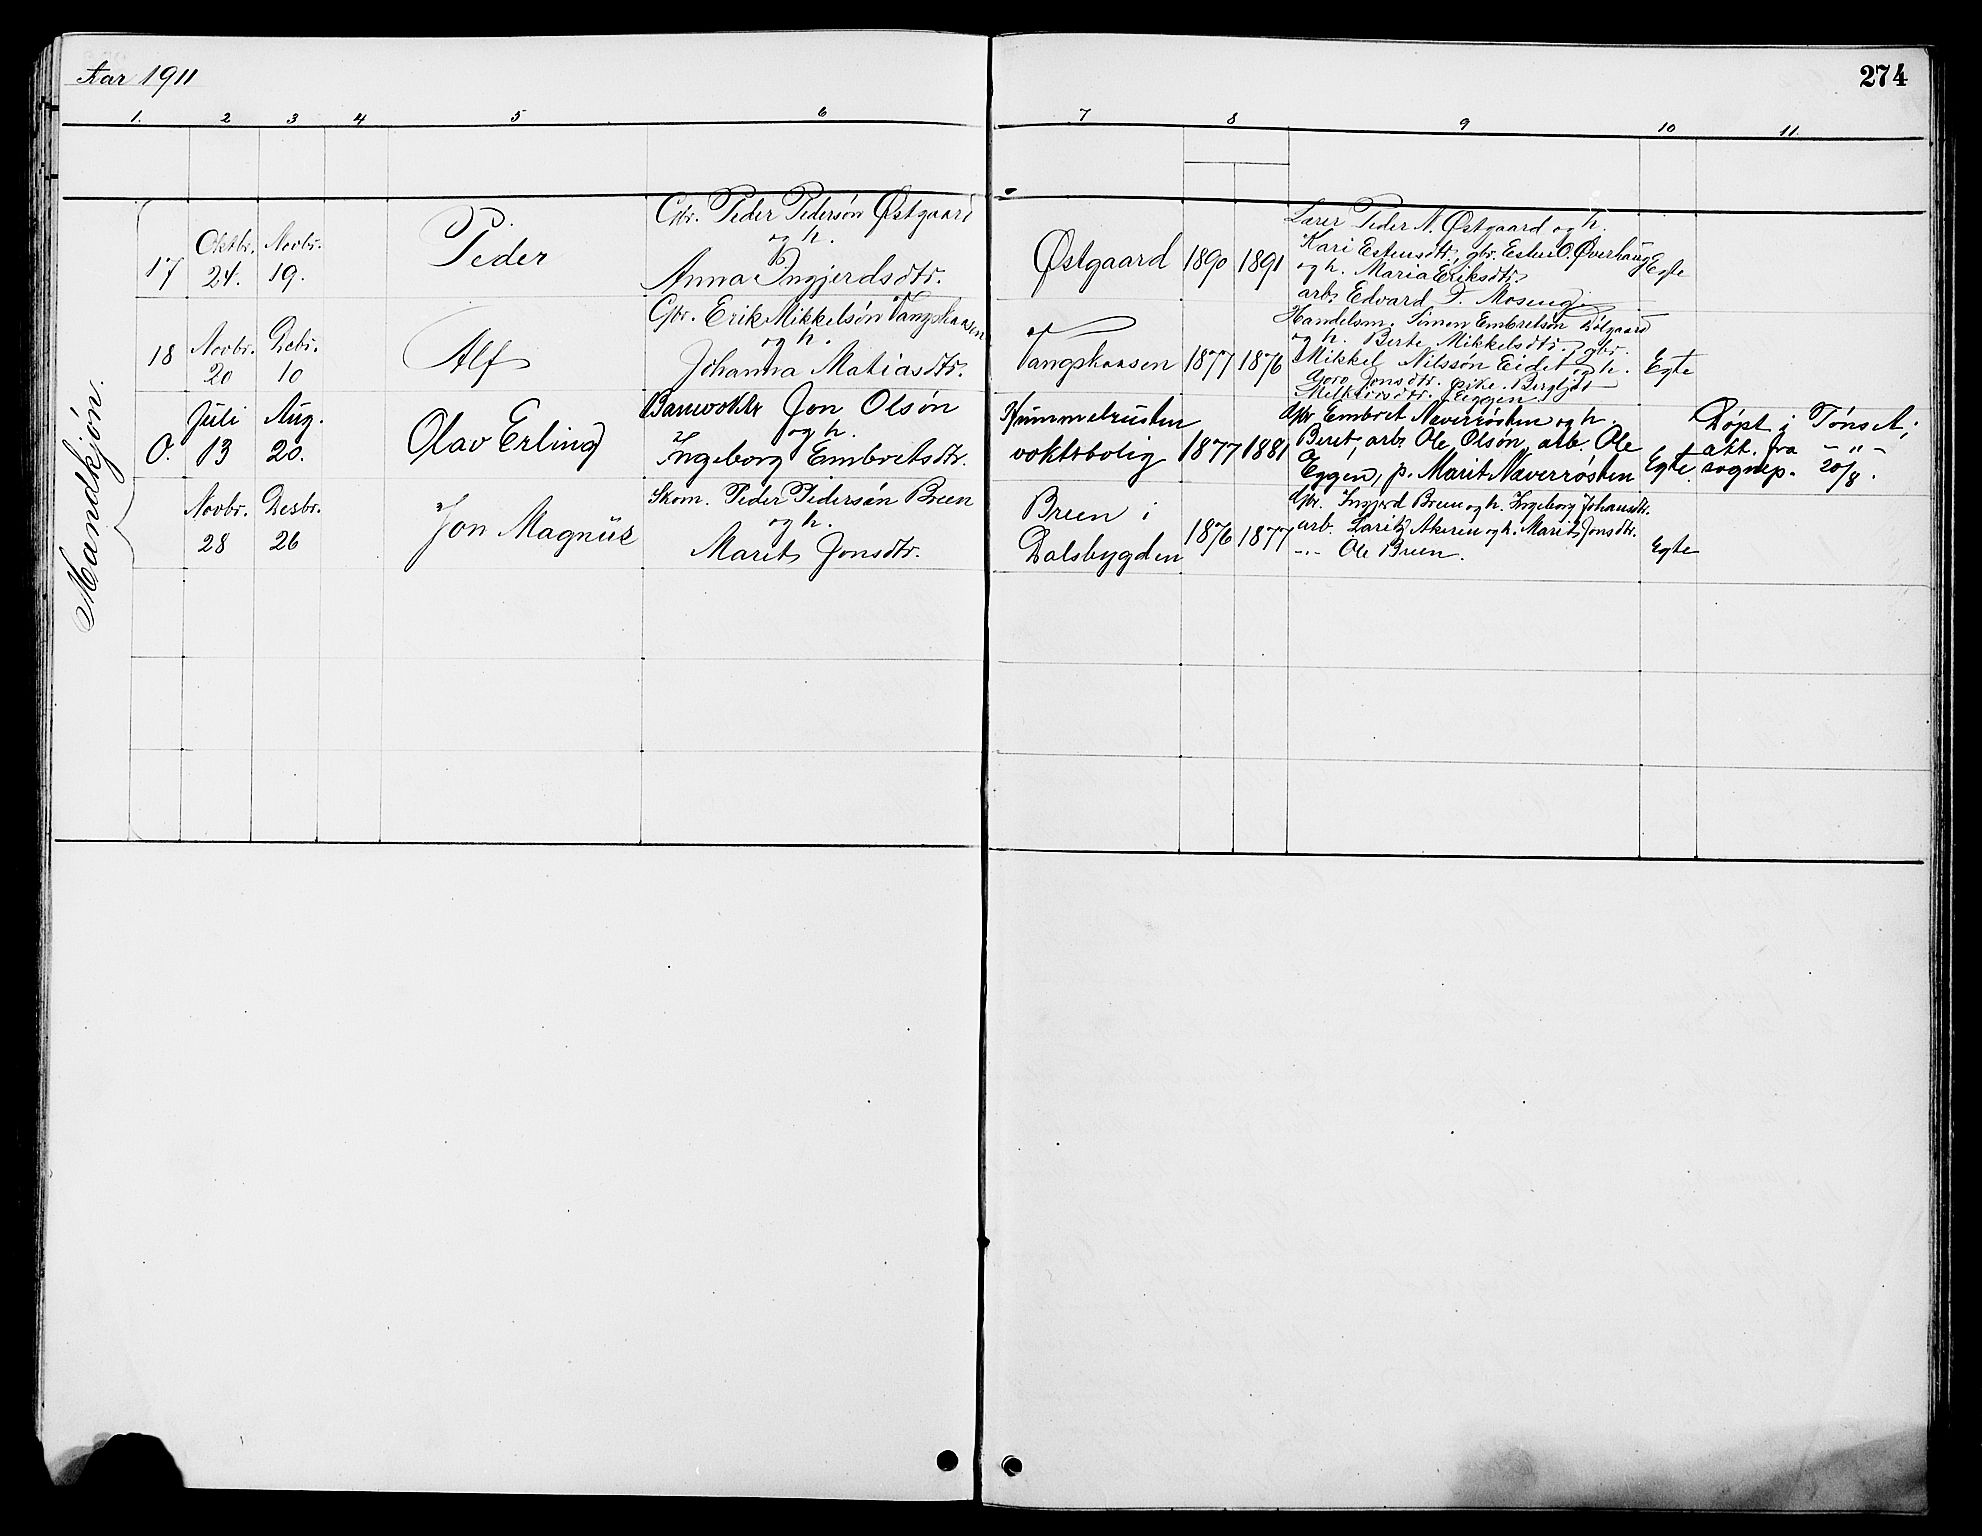 Aar 1911
274
1. 2 3 4 5 6 7 8 9 10 11.
Mandkjøn.
17
Oktbr. 24.
Novbr. 19.
Peder
Gbr. Peder Pedersøn Østgaard
og h.
Anna Ingjerdsdtr.
Østgaard
1890
1891
Lærer Peder N. Østgaard og h.
Kari Estensdtr., gbr. Esten O. Øverhaug
og h. Maria Eriksdtr.
arb. Edvard P. Moseng
Egte
18
Novbr. 20
Debr. 10
Alf
Gbr. Erik Mikkelsøn Vangskaasen
og h.
Johanna Matiasdtr.
Vangskaasen
1877
1876
Handelsm. Simen Embretsøn Dølgaard
og h. Berte Mikkelsdtr. gbr.
Mikkel Nilssøn Eidet og h.
Goro Jonsdtr. pike Bergljot
Eggen
Egte
O.
Juli 13
Aug. 20.
Olav Erling
Banevokter Jon Olsøn
og h.
Ingeborg Embretsdtr.
Hummelrusten
voktebolig
1877
1881
Gbr. Embret Næverrøsten og h.
Beret, arb. Ole Olsøn, arb. Ole
Eggen, p. Marit Næverrøsten
Egte.
Døpt i Tønset;
att. fra – " –
sognep. 20/8.
Novbr. 28
Desbr. 26
Jon Magnus
Skom. Peder Pedersøn Breen
og h.
Marit Jonsdtr.
Breen i
Dalsbygden
1876
1877
Gbr. Ingjerd Breen og h. Ingeborg Johansdtr.
arb. Laritz Akeren og h. Marit Jonsdtr.
–"– Ole Breen.
Egte